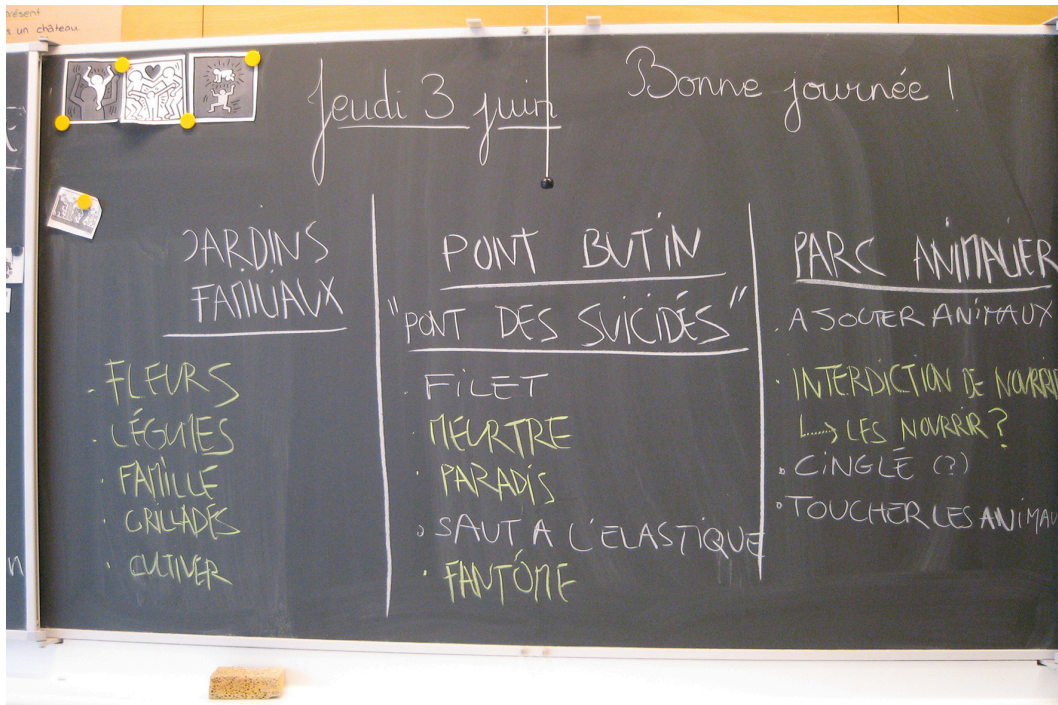 présent
s un château.
Jeudi 3 juin
Bonne journée !
JARDINS
FAMILIAUX
. FLEURS
. LÉGUMES
. FAMILLE
. GRILLADES
. CULTIVER
PONT BUTIN
"PONT DES SUICIDÉS"
. FILET
. MEURTRE
. PARADIS
. SAUT A L'ELASTIQUE
. FANTÔME
PARC ANIMALIER
. AJOUTER ANIMAUX
. INTERDICTION DE NOURRIR
↳ LES NOURRIR ?
. CINGLÉ (?)
. TOUCHER LES ANIMAU
n